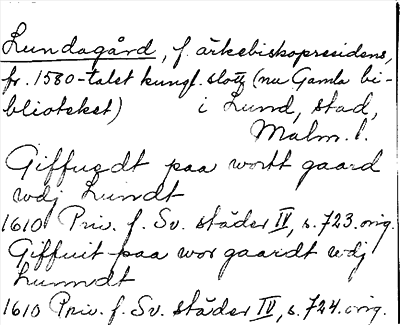 Lundagård, f. ärkebiskopresidens,
fr. 1580-talet kungl. slott (nu Gamla bi-
blioteket) i Lund, stad,
Malm. l.
Giffuedt paa wortt gaard
wdj Lundt
1610 Priv. f. Sv. städer IV, s. 723. orig.
Giffuit paa wor gaardt wdj
Lunndt
1610 Priv. f. Sv. städer IV, s. 724. orig.